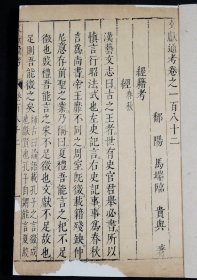 文獻通考卷之一百八十二
鄱陽 馬端臨 貴與 著
經籍考
經 春秋
漢藝文志曰古之王者世有史官君舉必書所以
慎言行昭法式也左史記言右史記事事為春秋
言為尚書帝王靡不同之周室既微載籍殘缺仲
尼思存前聖之業乃稱曰夏禮吾能言之杞不足
徵也殷禮吾能言之宋不足徵也文獻不足故也
足則吾能徵之矣
師古曰論語載孔子之言徵成
也孔子自謂能言夏